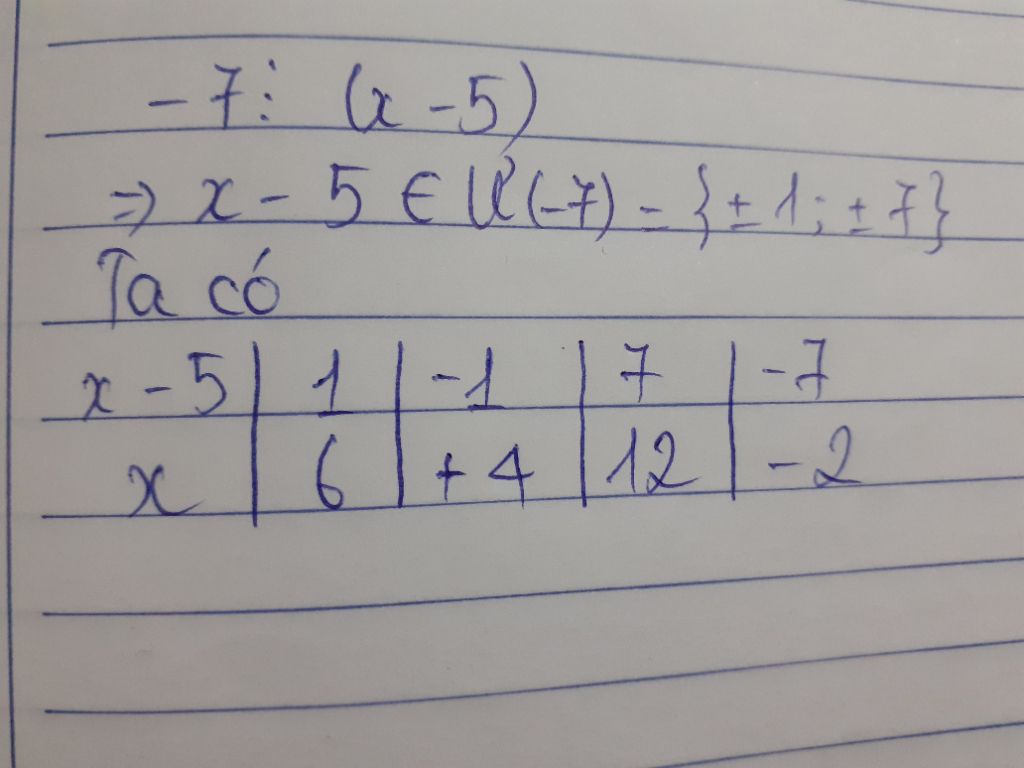 -7 ⋮ (x - 5)
=> x - 5 ∈ Ư(-7) = {± 1; ± 7}
Ta có
x - 5 | 1 | -1 | 7 | -7
x | 6 | +4 | 12 | -2